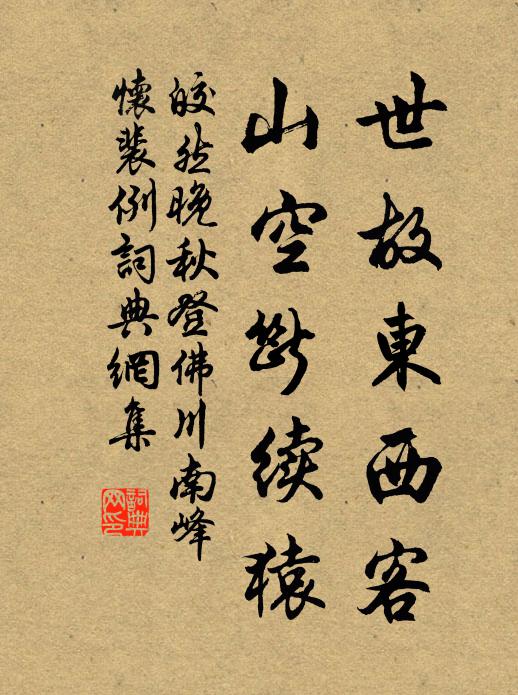 世故東西客
山空斷續猿
皎然晚秋登佛川南峰
懷裴例詞典網集
詞典網印